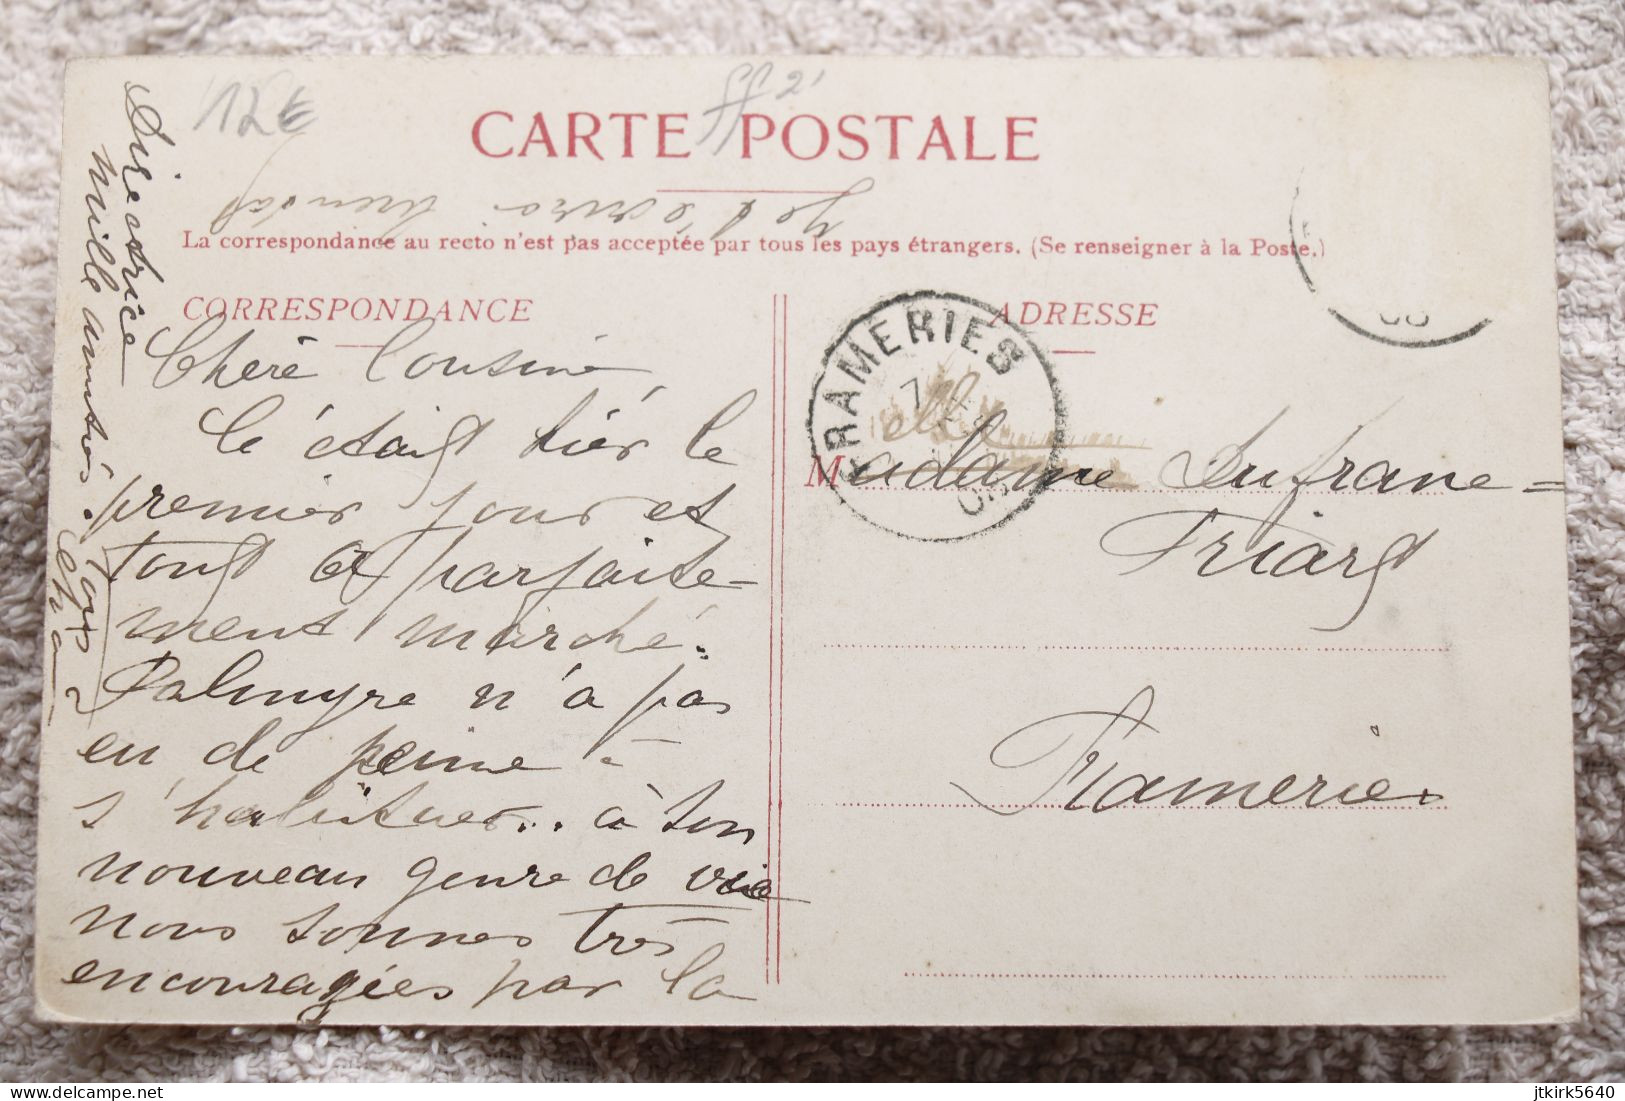 12€
CARTE POSTALE
La correspondance au recto n'est pas acceptée par tous les pays étrangers. (Se renseigner à la Poste.)
CORRESPONDANCE
ADRESSE
Chère Cousine,
C'était hier le
premier jour et
tout a parfaite-
ment marché.
Palmyre n'a pas
eu de peine -
s'habituer... à son
nouveau genre de vie
nous sommes très
encouragées par la
Directrice
mille amitiés.
FRAMERIES
7
Madame Dufrane=
Friart
Frameries
jtkirk5640